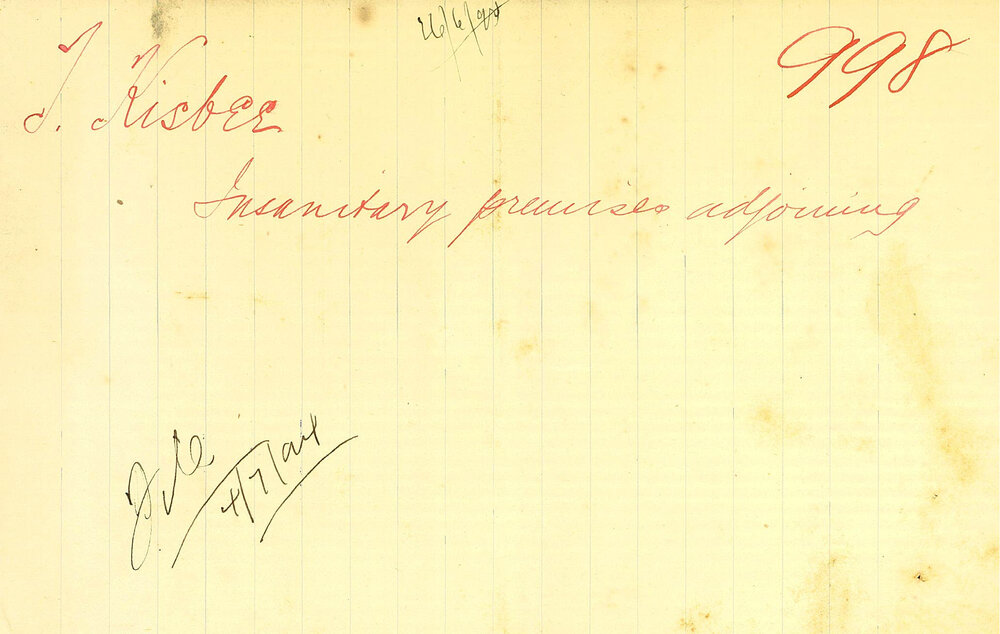 26/6/04
998
T. Kisbee
Insanitary premises adjoining
File
4/7/04